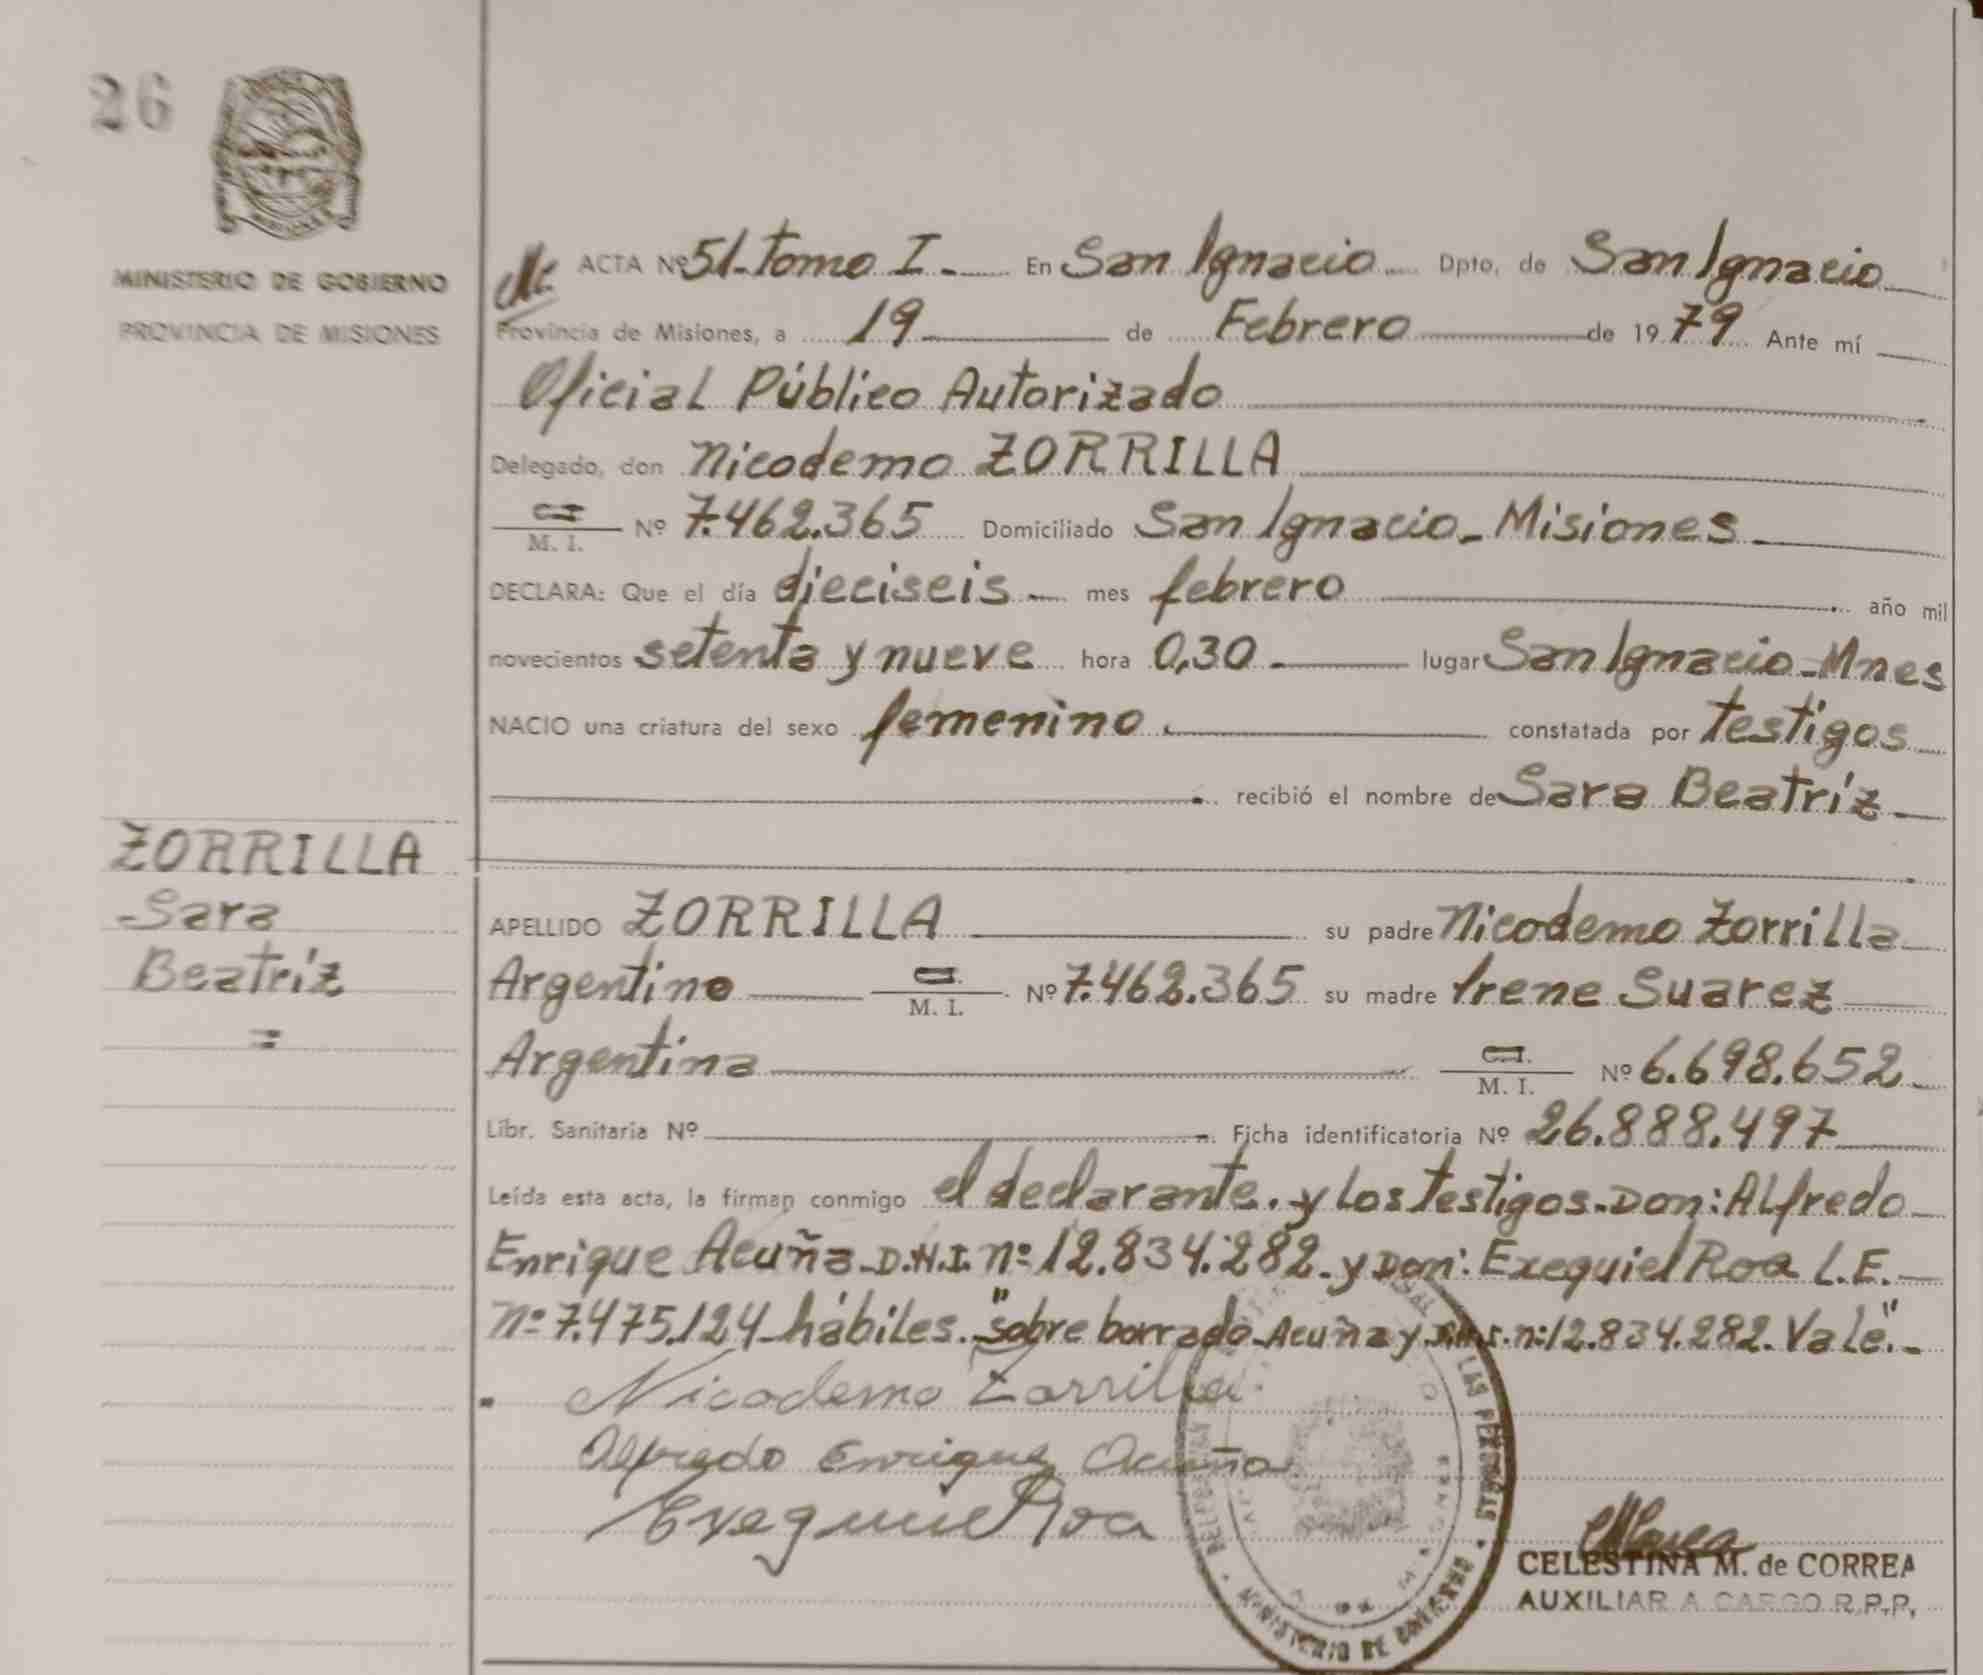 26
MINISTERIO DE GOBIERNO
PROVINCIA DE MISIONES
ACTA Nº 51-Tomo I.- En San Ignacio Dpto. de San Ignacio
Provincia de Misiones, a 19 de Febrero de 1979 Ante mí
Oficial Público Autorizado
Delegado, don Nicodemo ZORRILLA
M. I. Nº 7.462.365 Domiciliado San Ignacio-Misiones
DECLARA: Que el día dieciseis mes febrero año mil
novecientos setenta y nueve hora 0,30 lugar San Ignacio-Mnes
NACIO una criatura del sexo femenino constatada por testigos
recibió el nombre de Sara Beatríz
ZORRILLA
Sara
Beatríz
=
APELLIDO ZORRILLA su padre Nicodemo Zorrilla
Argentino M. I. Nº 7.462.365 su madre Irene Suarez
Argentina M. I. Nº 6.698.652
Libr. Sanitaria Nº Ficha identificatoria Nº 26.888.497
Leída esta acta, la firman conmigo el declarante. y los testigos-Don: Alfredo
Enrique Acuña-D.N.I. nº 12.834.282. y Don: Exequiel Roa L.E.
nº 7.475.124-hábiles. "sobre borrado-Acuña y D.N.I. nº 12.834.282. Vale".-
Nicodemo Zorrilla
Alfredo Enrique Acuña
Exequiel Roa
MINISTERIO DE GOBIERNO
LAS PERSONAS
CELESTINA M. de CORREA
AUXILIAR A CARGO R.P.P.